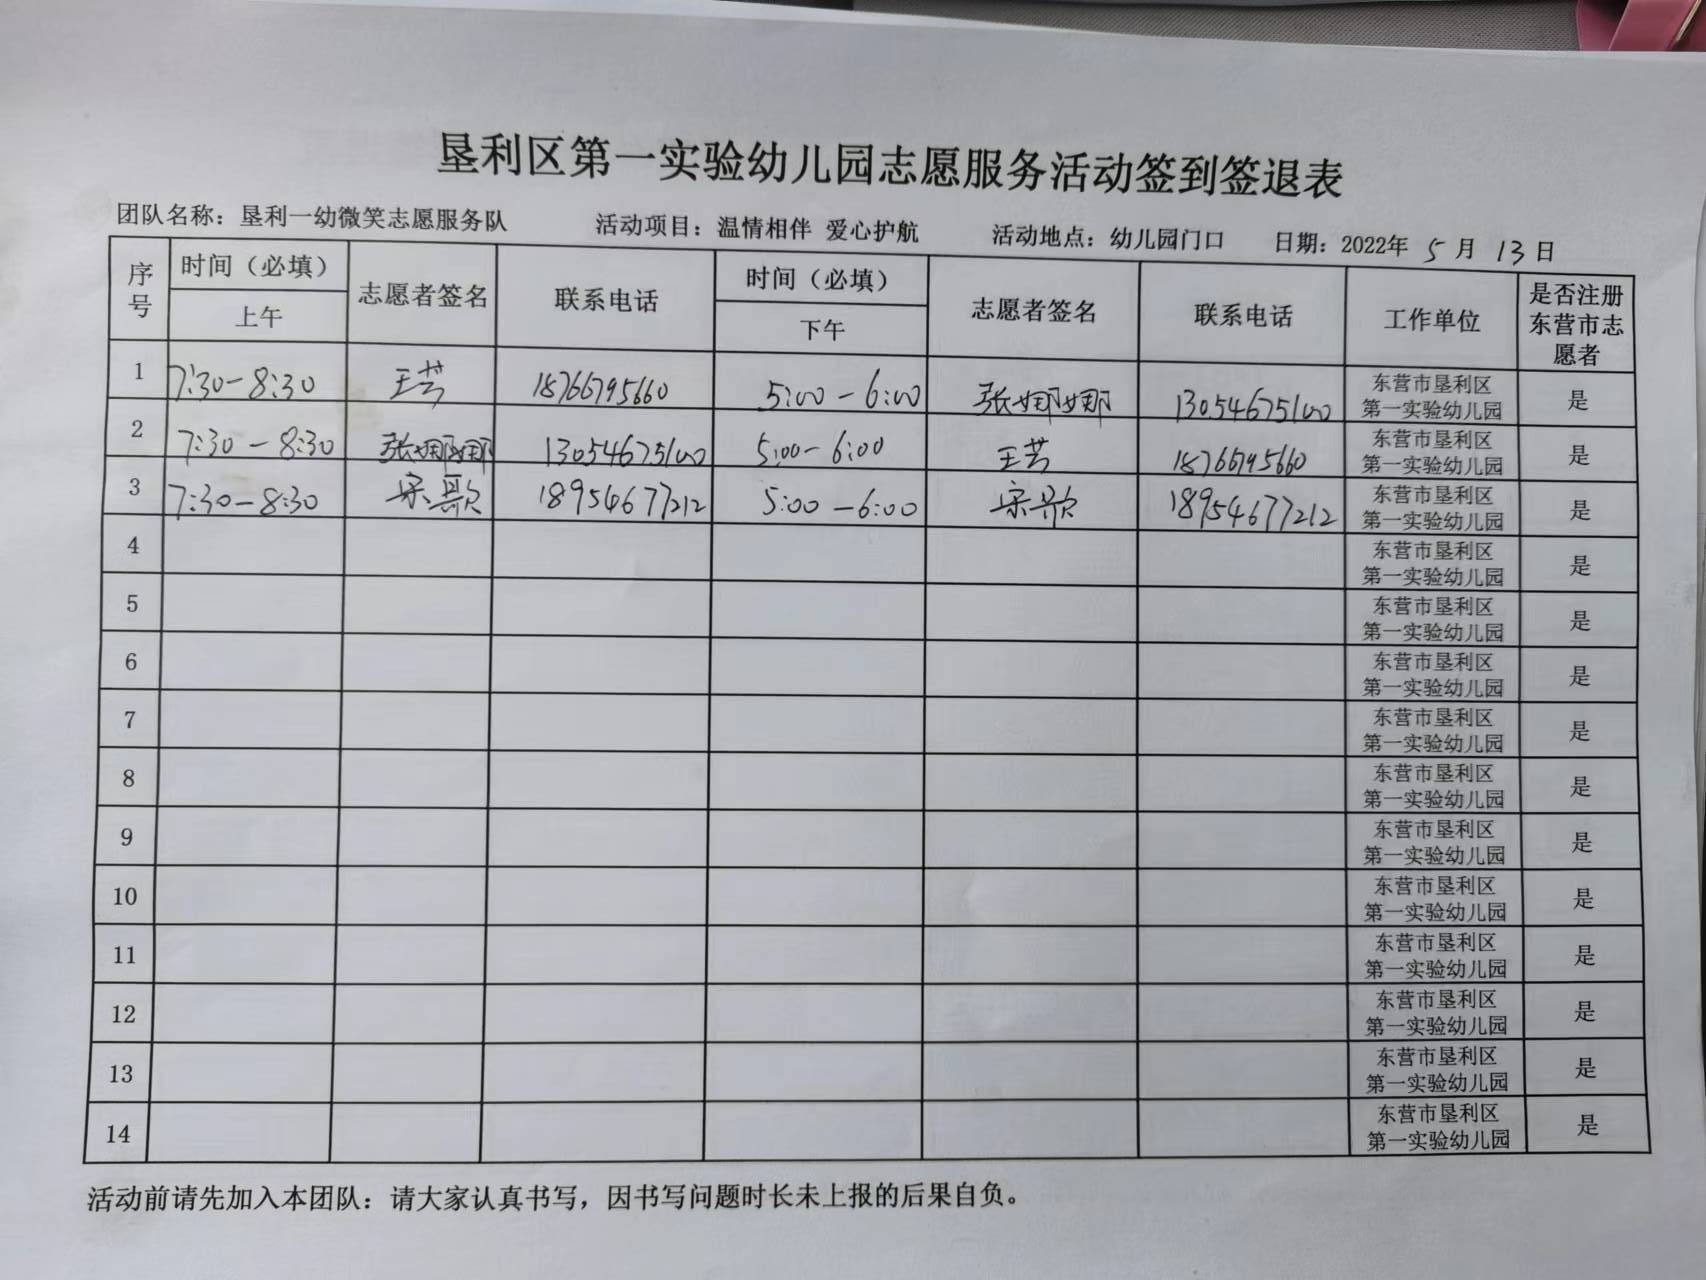 垦利区第一实验幼儿园志愿服务活动签到签退表
团队名称：垦利一幼微笑志愿服务队 活动项目：温情相伴 爱心护航 活动地点：幼儿园门口 日期：2022年 5 月 13 日
序号 时间（必填） 上午 志愿者签名 联系电话 时间（必填） 下午 志愿者签名 联系电话 工作单位 是否注册东营市志愿者
1 7:30-8:30 王芸 18766795660 5:00-6:00 张娜娜 13054675100 东营市垦利区第一实验幼儿园 是
2 7:30-8:30 张娜娜 13054675100 5:00-6:00 王芸 18766795660 东营市垦利区第一实验幼儿园 是
3 7:30-8:30 宋歌 18954677212 5:00-6:00 宋歌 18954677212 东营市垦利区第一实验幼儿园 是
4 东营市垦利区第一实验幼儿园 是
5 东营市垦利区第一实验幼儿园 是
6 东营市垦利区第一实验幼儿园 是
7 东营市垦利区第一实验幼儿园 是
8 东营市垦利区第一实验幼儿园 是
9 东营市垦利区第一实验幼儿园 是
10 东营市垦利区第一实验幼儿园 是
11 东营市垦利区第一实验幼儿园 是
12 东营市垦利区第一实验幼儿园 是
13 东营市垦利区第一实验幼儿园 是
14 东营市垦利区第一实验幼儿园 是
活动前请先加入本团队：请大家认真书写，因书写问题时长未上报的后果自负。